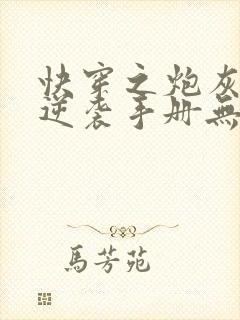 快穿之炮灰
逆袭手册無
馬芳苑